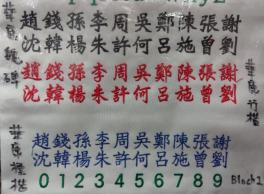 趙錢孫李周吳鄭陳張謝
沈韓楊朱許何呂施曾劉
趙錢孫李周吳鄭陳張謝
沈韓楊朱許何呂施曾劉
趙錢孫李周吳鄭陳張謝
沈韓楊朱許何呂施曾劉
0 1 2 3 4 5 6 7 8 9 Black1
華康魏碑
華康行楷